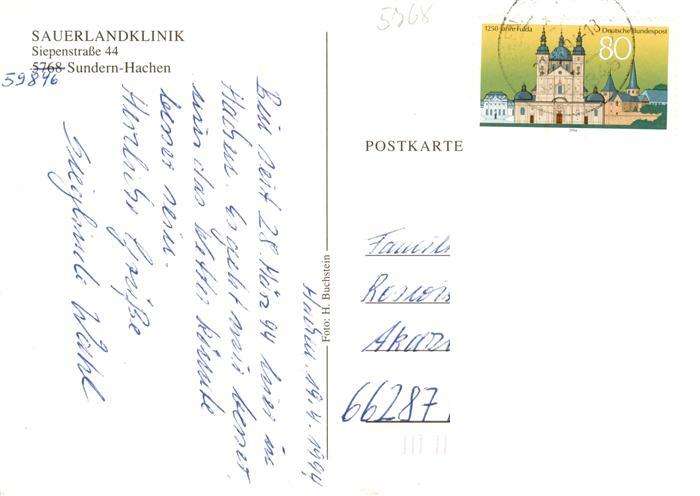 SAUERLANDKLINIK
Siepenstraße 44
5768 Sundern-Hachen
59846
5768
1250 Jahre Fulda
Deutsche Bundespost
80
POSTKARTE
Hachen. 19.4.1994
Bin seit 28. März 94 hier in
Hachen. Es geht mir besser.
nur das Wetter könnte
besser sein.
Herzliche Grüße
Sieglinde Wahl
Foto: H. Buchstein
Famili
66287